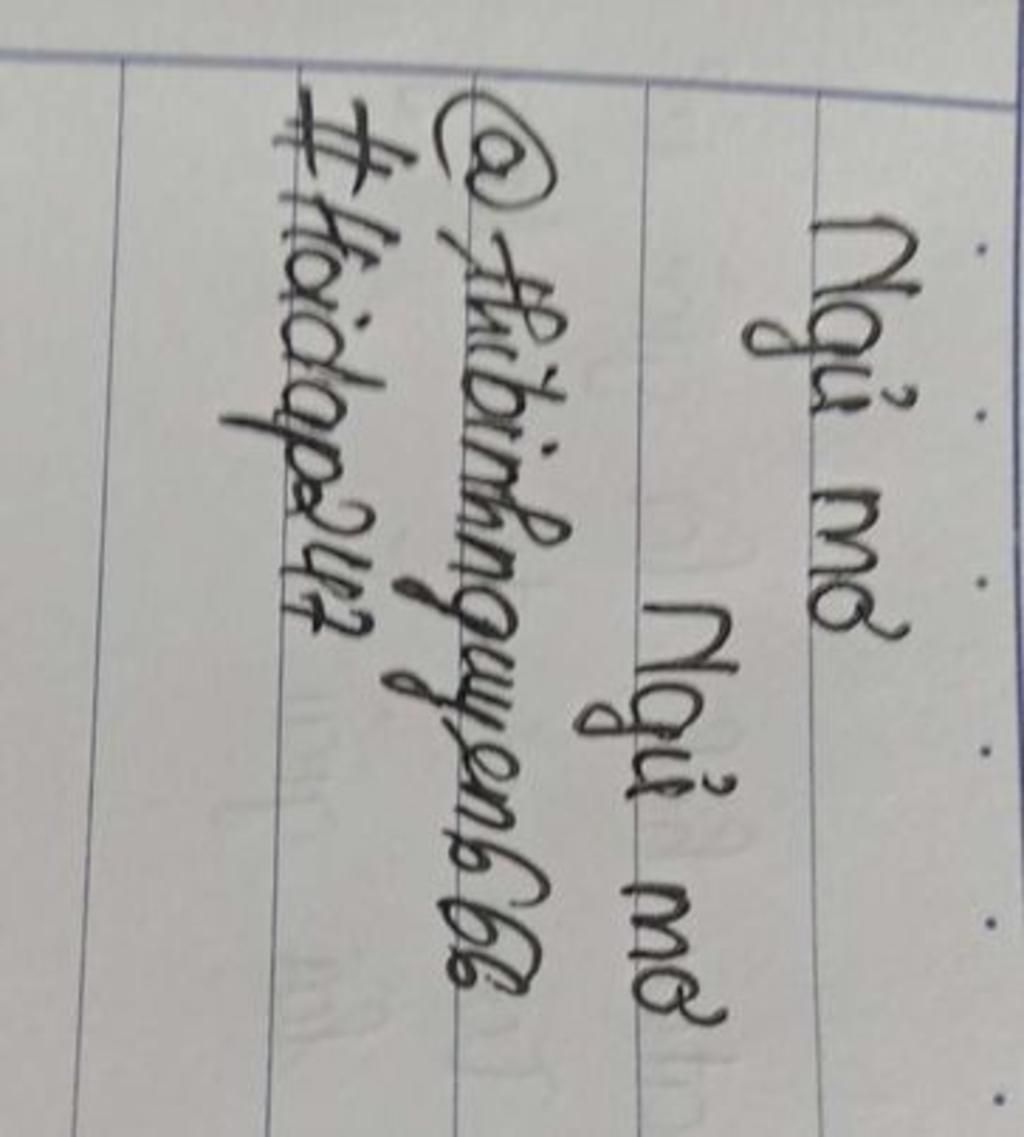 Ngủ mơ
Ngủ mơ
@thibinhnguyen66
#hoidap247